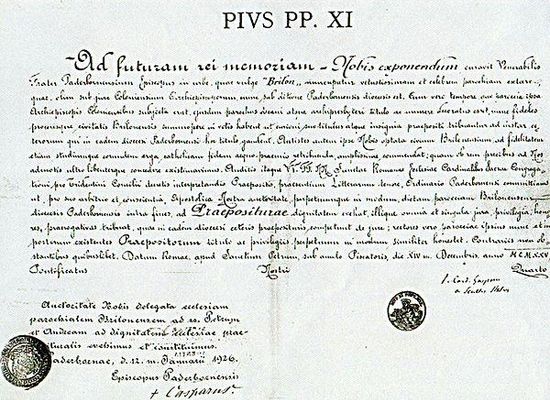 PIVS PP. XI
Ad futuram rei memoriam - Nobis exponendum curavit Venerabilis
Frater Paderbornensium Episcopus in urbe, quae vulgo "Brilon" nuncupatur vetustissimam et celebrem paroeciam extare,
quae, olim sub jure Coloniensium Archiepiscoporum, nunc, sub ditione Paderbornensis dioecesis est. Cum vero tempore quo paroecia ipsa
Archiepiscopis Coloniensibus subjecta erat, ejusdem parochus decani atque archipresbyteri titulo ac munere decoratus esset, nunc fideles
proceresque civitatis Brilonensis in votis habent ut rectori, titulus atque insignia praepositi tribuantur ad instar
rum qui in eadem dioecesi Paderbornensi hoc titulo gaudent. Antistes autem ipse Nobis civium Brilonensium, ad fidelitatem
etiam studiumque erga catholicam fidem aequo praemio
admotis ultro libenterque concedere existimavimus. Auditis itaque VV. FF. NN. Sanctae Romanae Ecclesiae Cardinalibus Sacrae Congrega-
tioni, pro Tridentini Concilii decretis interpretandis Praepositis, praesentium Litterarum tenore, Ordinario Paderbornensi committimus
ut, pro suo arbitrio et conscientia, Apostolica Nostra auctoritate, perpetuumque in modum, dictam paroeciam Brilonensem
dioecesis Paderbornensis intra fines, ad Praepositurae dignitatem evehat, illique omnia et singula jura, privilegia, hono-
res, praerogativas tribuat, quae in eadem dioecesi ceteris praeposituris, competunt de jure; rectores vero paroeciae ipsius nunc et in
posterum existentes Praepositorum titulo ac privilegiis, perpetuum in modum similiter honestet. Contrariis non ob-
stantibus quibuslibet. Datum Romae, apud Sanctum Petrum, sub anulo Piscatoris, die XIV m. Decembris, anno MCMXXV,
Pontificatus Nostri Quarto
Auctoritate Nobis delegata ecclesiam
parochialem Brilonensem ad ss. Petrum
et Andream ad dignitatem ecclesiae prae-
posituralis evehimus et constituimus.
Paderbornae, d. 12. m. Januarii 1926.
Episcopus Paderbornensis
+ Casparus.